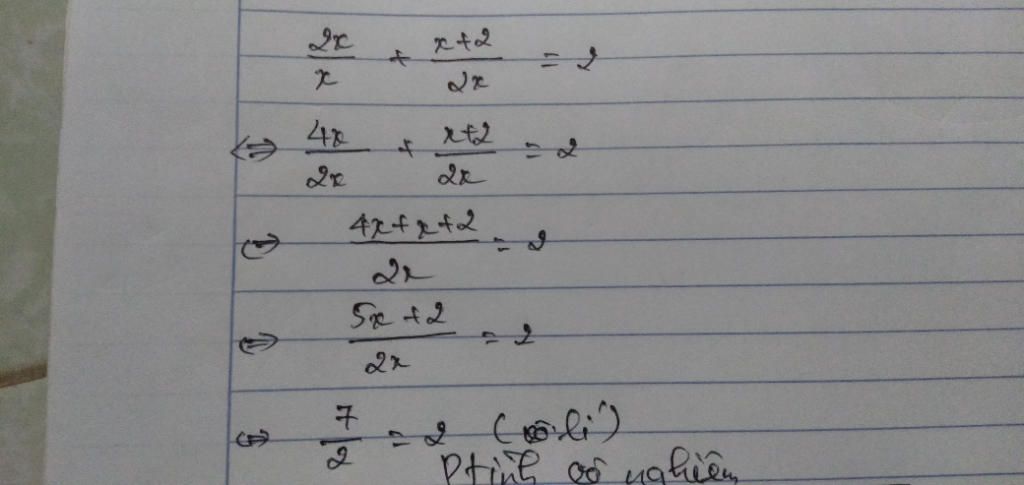 2x/x + (x+2)/2x = 2
⇔ 4x/2x + (x+2)/2x = 2
⇔ (4x+x+2)/2x = 2
⇔ (5x+2)/2x = 2
⇔ 7/2 = 2 (vô lí)
Ptình vô nghiệm